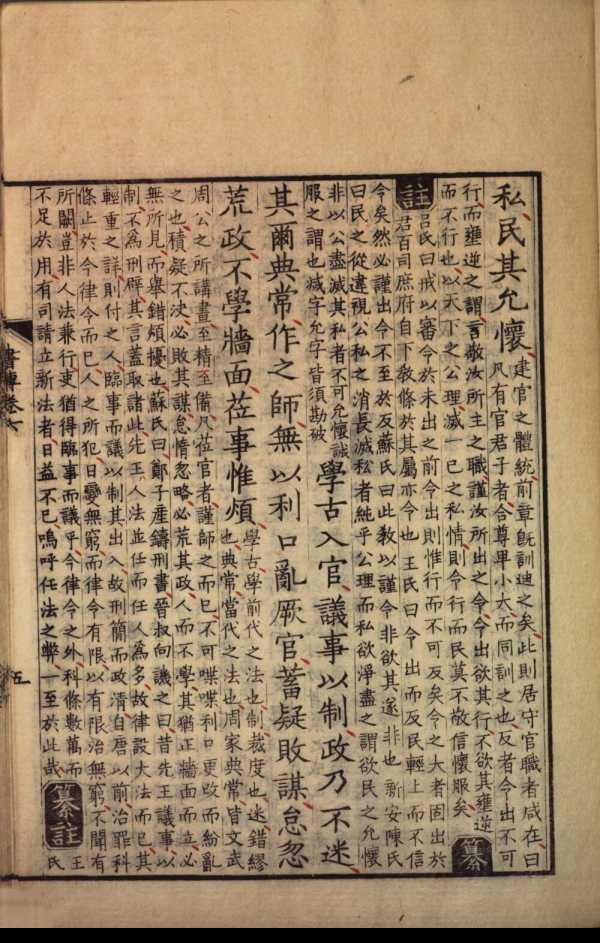 私民其允懷
建官之體統前章旣訓迪之矣此則居守官職者咸在曰
凡有官君子者合尊卑小大而同訓之也反者令出不可
行而壅逆之謂言敬汝所主之職謹汝所出之令令出欲其行不欲其壅逆
而不行也以天下之公理滅一己之私情則令行而民莫不敬信懷服矣
纂
註
呂氏曰戒以審令於未出之前令出則惟行而不可反矣令之大者固出於
君百司庶府自下敎條於其屬亦令也王氏曰令出而反民輕上而不信
令矣然必謹出令不至於反蘇氏曰此敎以謹令非欲其遂非也新安陳氏
曰民之從違視公私之消長滅私者純乎公理而私欲淨盡之謂欲民之允懷
非以公盡滅其私者不可允懷誠
服之謂也滅字允字皆須勘破
學古入官議事以制政乃不迷
其爾典常作之師無以利口亂厥官蓄疑敗謀怠忽
荒政不學牆面莅事惟煩
學古學前代之法也制裁度也迷錯繆
也典常當代之法也周家典常皆文武
周公之所講畫至精至備凡莅官者謹師之而已不可喋喋利口更改而紛亂
之也積疑不決必敗其謀怠惰忽略必荒其政人而不學其猶正牆面而立必
無所見而舉錯煩擾也蘇氏曰鄭子產鑄刑書晉叔向譏之曰昔先王議事以
制不爲刑辟其言蓋取諸此先王人法並任而任人爲多故律設大法而已其
輕重之詳則付之人臨事而議以制其出入故刑簡而政清自唐以前治罪科
條止於今律令而已人之所犯日變無窮而律令有限以有限治無窮不聞有
所闕豈非人法兼行吏猶得臨事而議乎今律令之外科條數萬而
不足於用有司請立新法者日益不已嗚呼任法之弊一至於此哉
纂註
王
氏
書傳卷
五